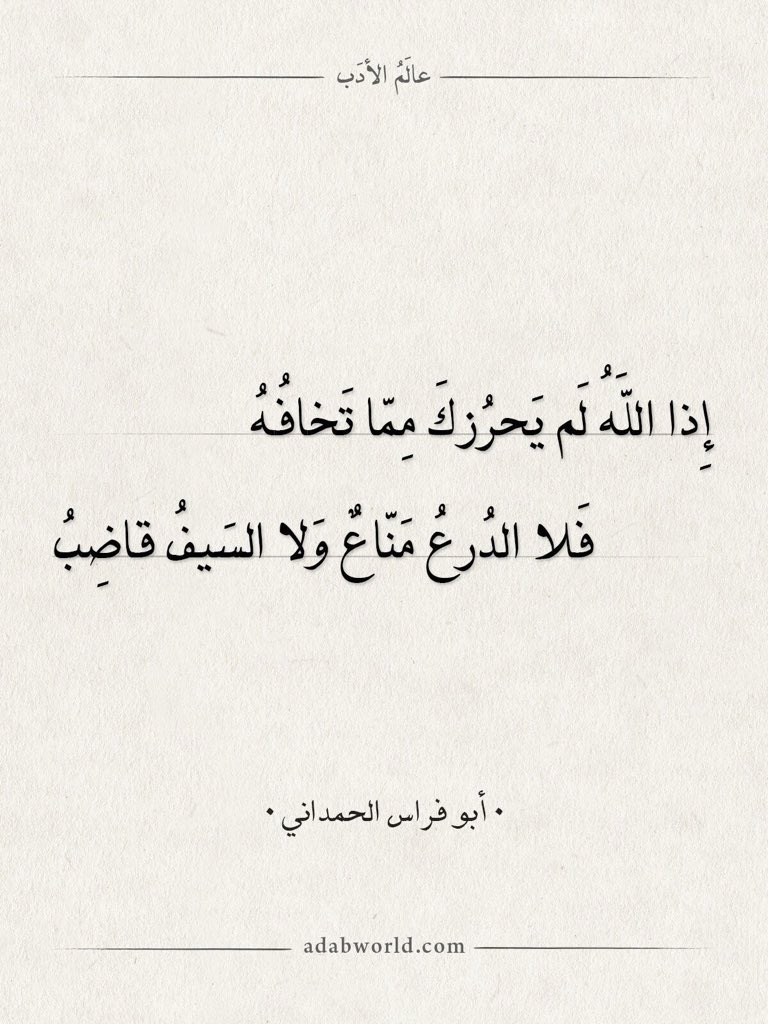 عالَمُ الأدَب
إِذا اللَّهُ لَم يَحرُزكَ مِمّا تَخافُهُ
فَلا الدُرعُ مَنّاعٌ وَلا السَيفُ قاضِبُ
• أبو فراس الحمداني •
adabworld.com